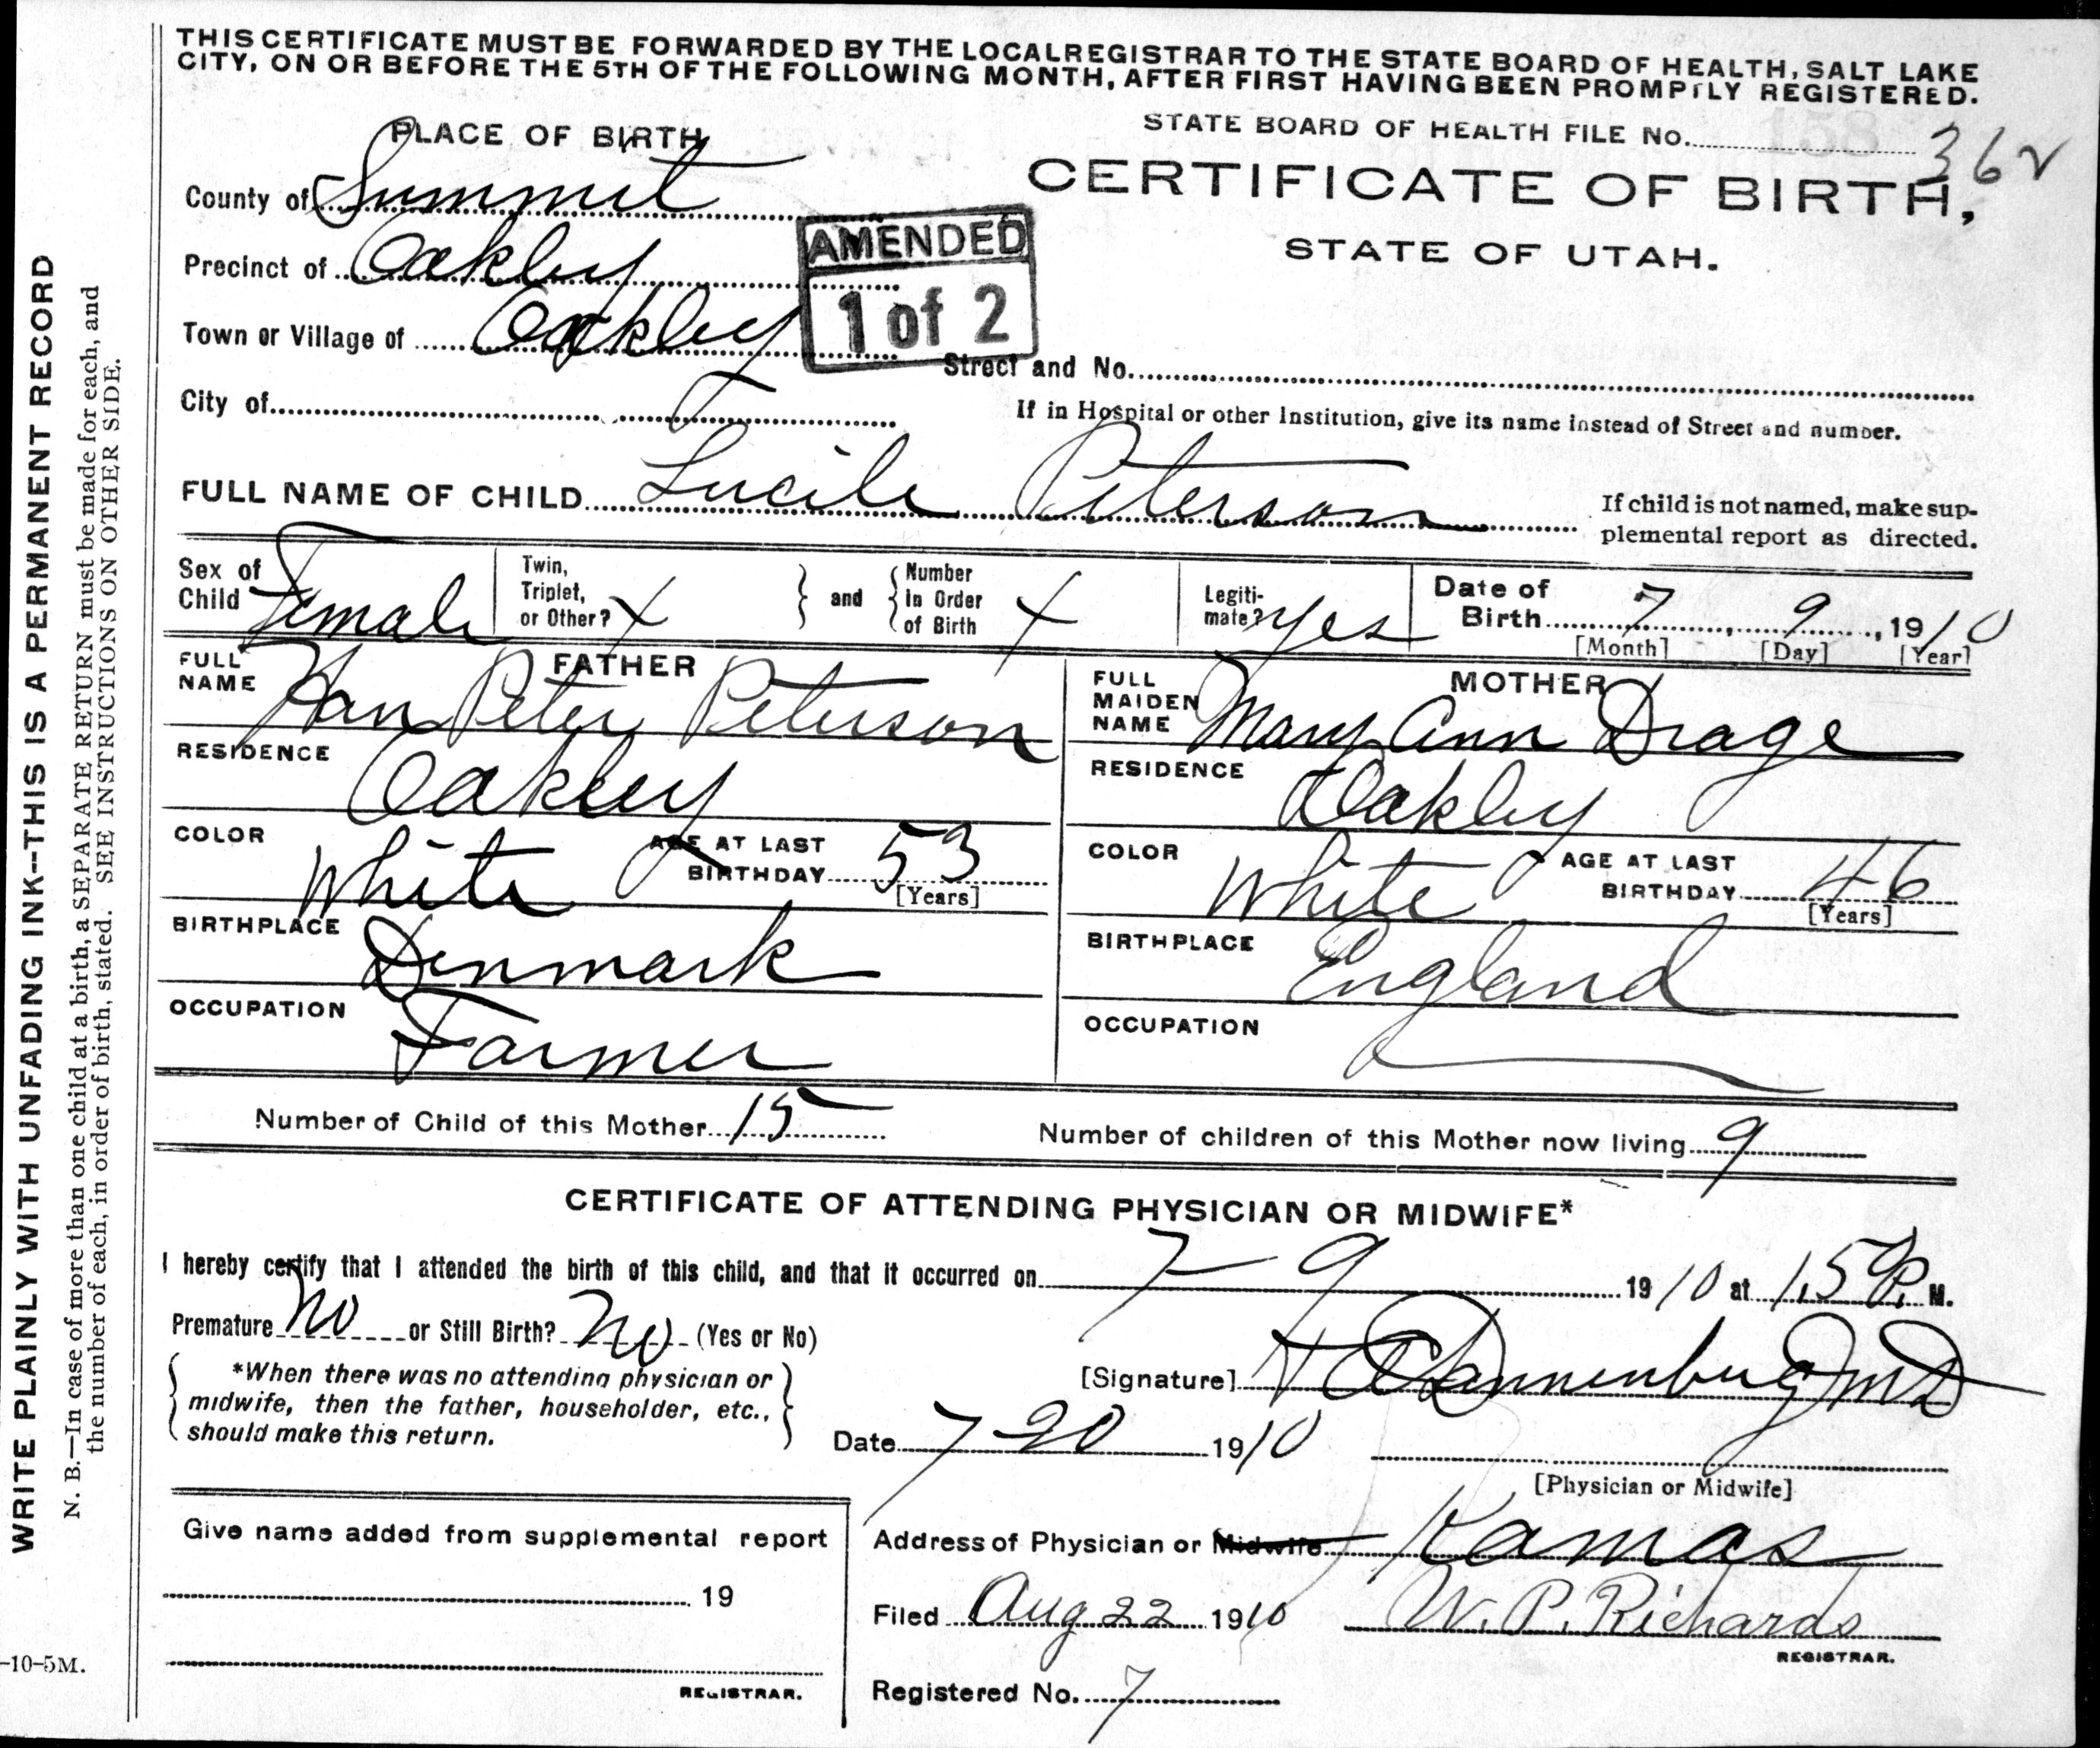 THIS CERTIFICATE MUST BE FORWARDED BY THE LOCAL REGISTRAR TO THE STATE BOARD OF HEALTH, SALT LAKE
CITY, ON OR BEFORE THE 5TH OF THE FOLLOWING MONTH, AFTER FIRST HAVING BEEN PROMPTLY REGISTERED.
PLACE OF BIRTH
STATE BOARD OF HEALTH FILE No. 362
CERTIFICATE OF BIRTH,
STATE OF UTAH.
County of Summit
Precinct of Oakley
Town or Village of Oakley
AMENDED
1 of 2
Street and No.
City of
If in Hospital or other Institution, give its name instead of Street and number.
FULL NAME OF CHILD Lucile Peterson
If child is not named, make sup-
plemental report as directed.
Sex of Child Female
Twin, Triplet, or Other? X
and
Number in Order of Birth X
Legiti-mate? Yes
Date of Birth 7, 9, 1910
[Month] [Day] [Year]
FATHER
FULL NAME Han Peter Peterson
RESIDENCE Oakley
COLOR White
AGE AT LAST BIRTHDAY 53
[Years]
BIRTHPLACE Denmark
OCCUPATION Farmer
MOTHER
FULL MAIDEN NAME Mary Ann Drage
RESIDENCE Oakley
COLOR White
AGE AT LAST BIRTHDAY 46
[Years]
BIRTHPLACE England
OCCUPATION
Number of Child of this Mother 15
Number of children of this Mother now living 9
CERTIFICATE OF ATTENDING PHYSICIAN OR MIDWIFE*
I hereby certify that I attended the birth of this child, and that it occurred on 7-9 1910 at 1,50 P. M.
Premature No or Still Birth? No (Yes or No)
*When there was no attending physician or
midwife, then the father, householder, etc.,
should make this return.
[Signature] Dannenburg MD
Date 7-20 1910
[Physician or Midwife]
Give name added from supplemental report
19
REGISTRAR.
Address of Physician or Midwife Kamas
Filed Aug 22 1910 W. P. Richards
REGISTRAR.
Registered No. 7
WRITE PLAINLY WITH UNFADING INK--THIS IS A PERMANENT RECORD
N. B.—In case of more than one child at a birth, a SEPARATE RETURN must be made for each, and
the number of each, in order of birth, stated. SEE INSTRUCTIONS ON OTHER SIDE.
-10-5M.